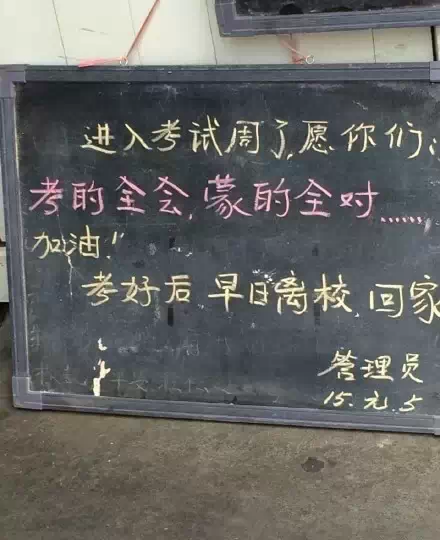 进入考试周了,愿你们:
考的全会,蒙的全对......
加油!
考好后 早日离校,回家
管理员
15.元.5